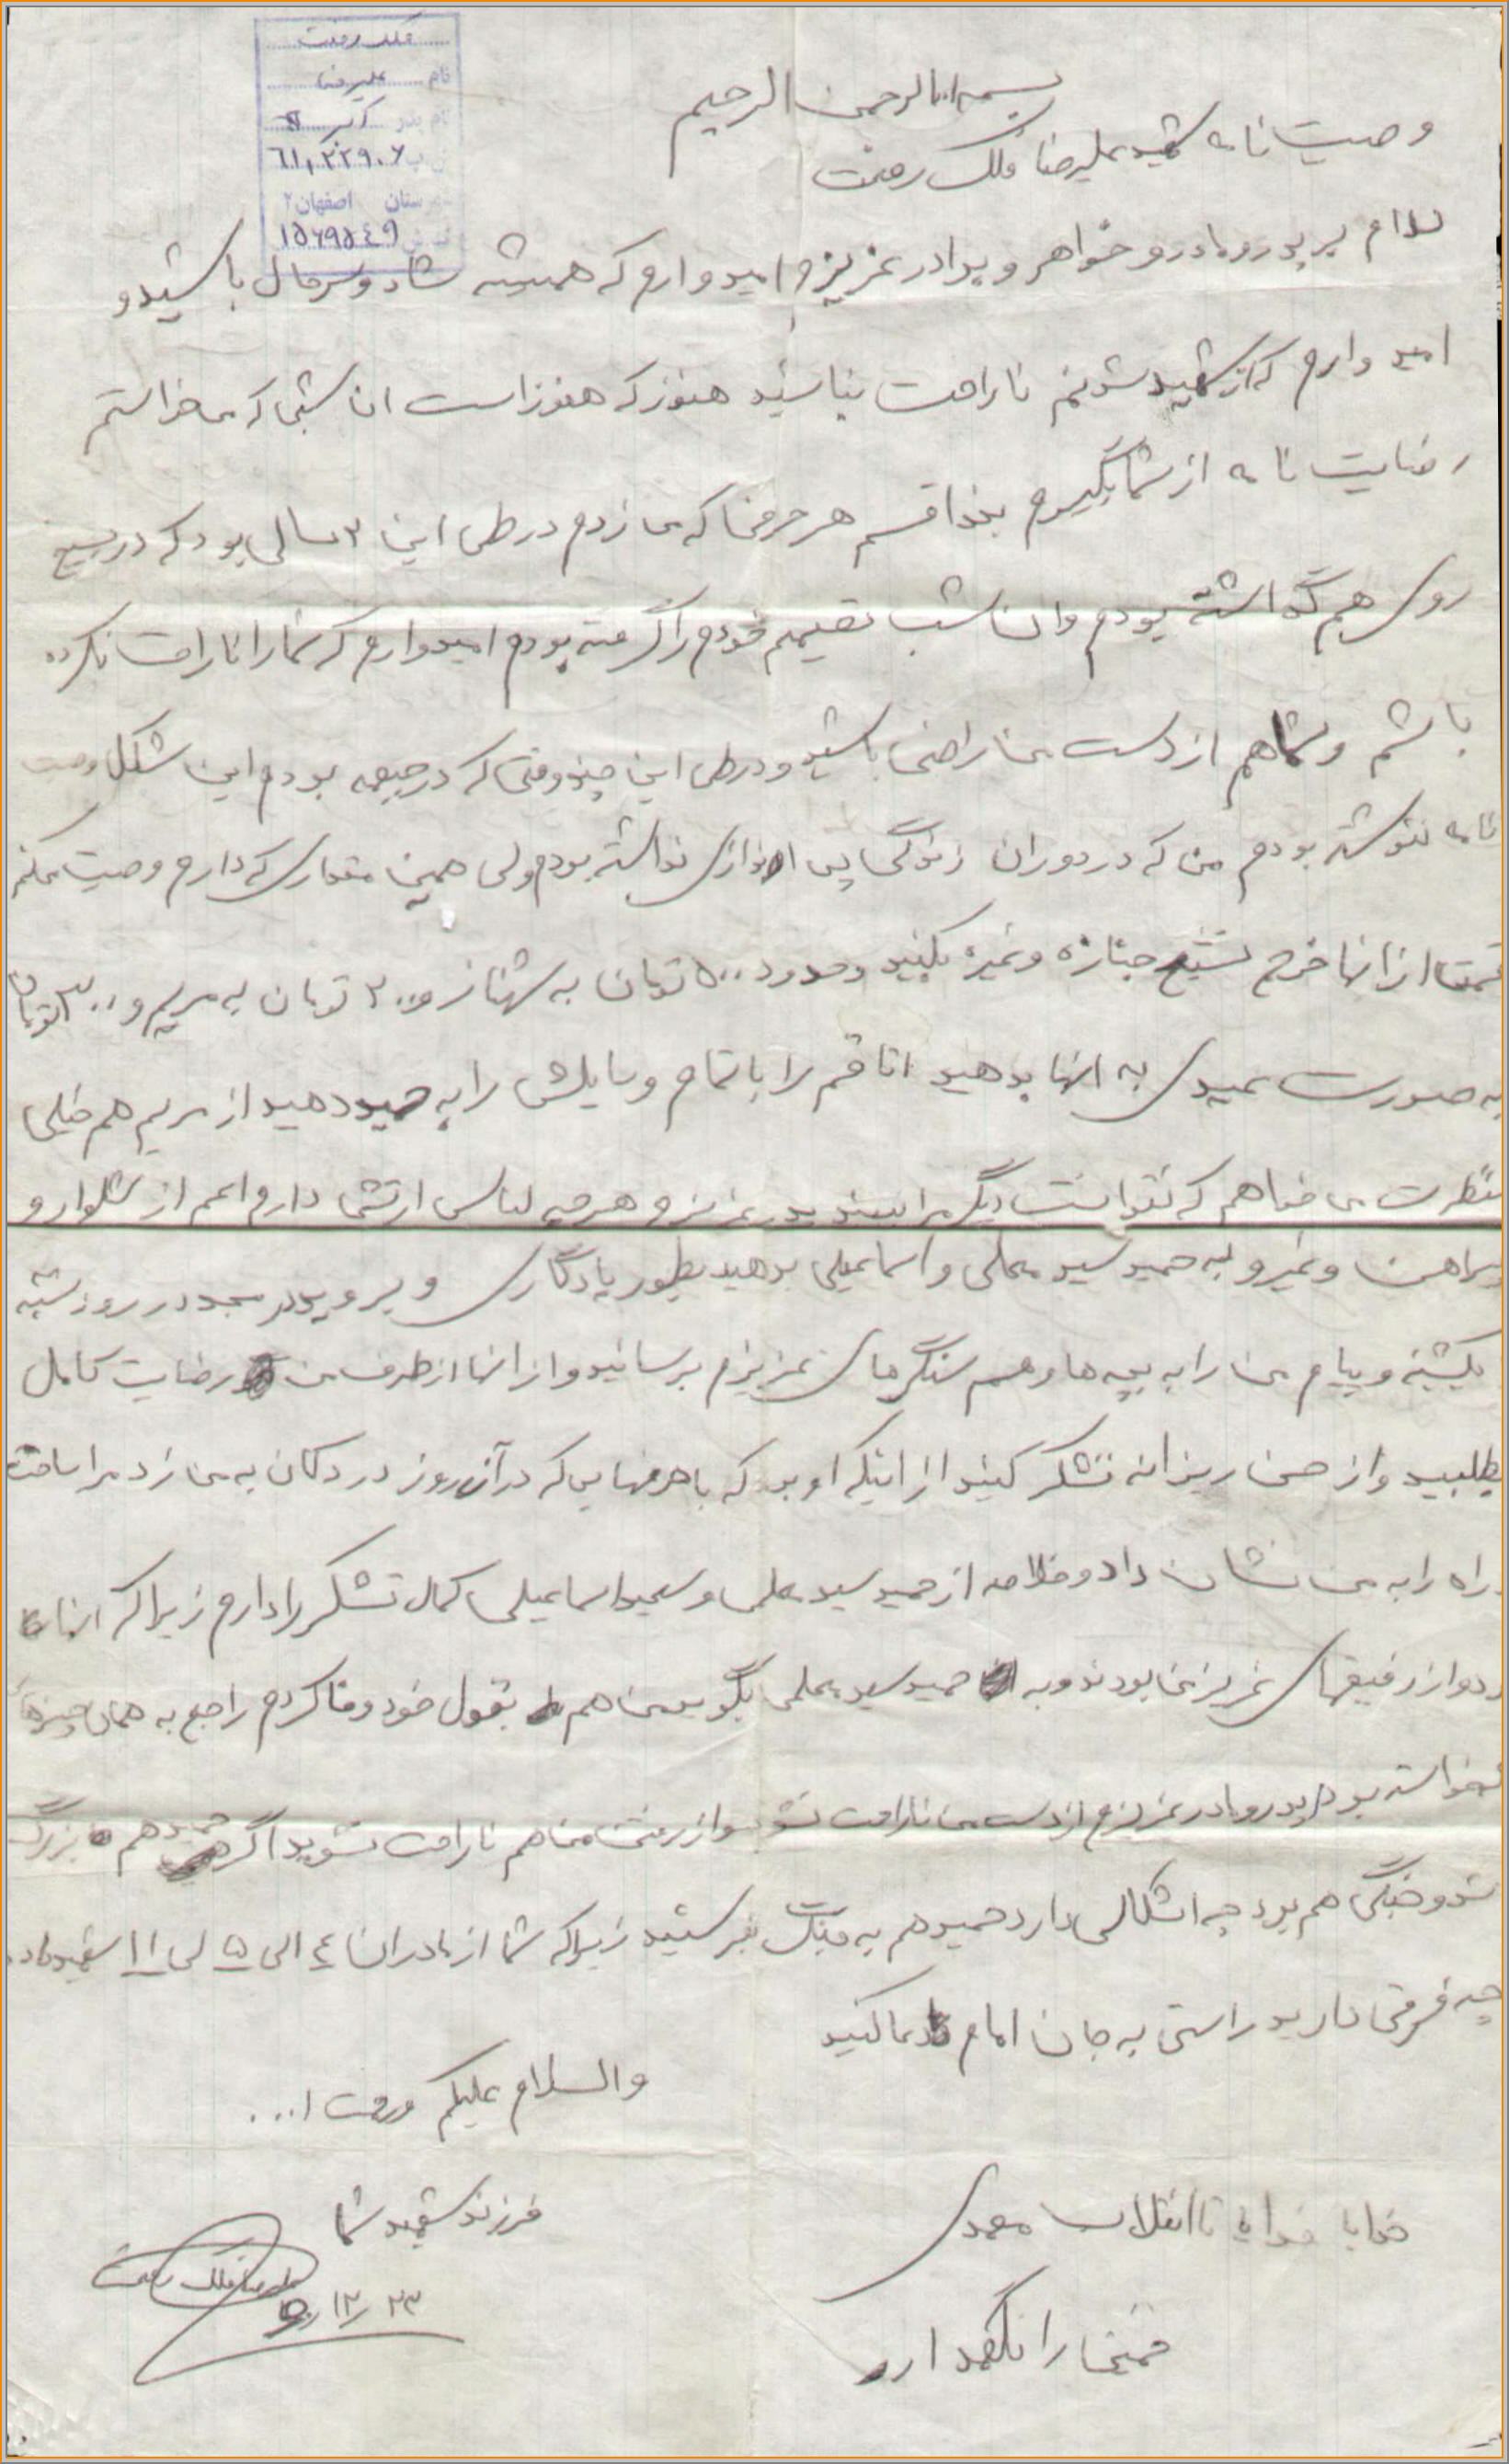 ملک رفعت
نام علیرضا
نام پدر اکبر
ن پ 61,22906
ستان اصفهان ۲
1569549
بسم الله الرحمن الرحیم
وصیت نامه شهید علیرضا ملک رفعت
سلام بر پدر و مادر و خواهر و برادر عزیزم امیدوارم که همیشه شاد و سرحال باشید و
امیدوارم که از شهید شدنم ناراحت نباشید هنوز که هنوز است ان شبی که می خواستم
رضایت نامه از شما بگیرم بخدا قسم هر حرفی که می زدم در طی این ۲ سالی بود که در بسیج
روی هم گذاشته بودم و ان شب تصمیم خودم را گرفته بودم امیدوارم که شما را ناراحت نکرده
باشم و شما هم از دست من راضی باشید و در طی این چند وقتی که در جبهه بودم این شکل وصیت
نامه ننوشته بودم من که در دوران زندگی پس اندازی نداشته بودم ولی همین مقداری که دارم وصیت میکنم
قسمتی از انها خرج تشیع جنازه و غیره بکنید و حدود ۵۰۰ تومان به شهناز و ۲۰۰ تومان به مریم و ۳۰۰ تومان
به صورت عیدی به انها بدهید اتاقم را با تمام وسایلش را به حمید دهید از مریم هم خیلی
معذرت می خواهم که نتوانست دیگر مرا ببیند پدر عزیزم هر چه لباس ارتشی دارم اعم از شلوار و
پیراهن و غیره به حمید سید علی و اسماعیلی بدهید بطور یادگاری و بروید در مسجد در روز شنبه
یکشنبه و پیام من را به بچه ها و هم سنگرهای عزیزم برسانید و از انها از طرف من رضایت کامل
بطلبید و از حسن ریزانه تشکر کنید از اینکه او بود که با حرفهایی که در آن روز در دکان به من زد مرا ساخت
راه را به من نشان داد و خلاصه از حمید سید علی و سعید اسماعیلی کمال تشکر را دارم زیرا که انها
دو از رفیقهای عزیز من بودند و به حمید سید علی بگویید من هم بقول خود وفا کردم راجع به همان چیزها
خواسته بودم پدر و مادر عزیزم از دست من ناراحت نشوید و از رفتن من هم ناراحت نشوید اگر حمید هم بزرگ
شد و جنگی هم بود چه اشکالی دارد حمید هم به جنگ بفرستید زیرا که شما از مادران ٤ الی ۵ الی ۱۱ شهید داده
چه فرقی دارید راستی به جان امام دعا کنید
والسلام علیکم ورحمت ا...
خدایا خدایا تا انقلاب مهدی
خمینی را نگهدار
فرزند شهید شما
علیرضا ملک رفعت
۱۲/۲۳